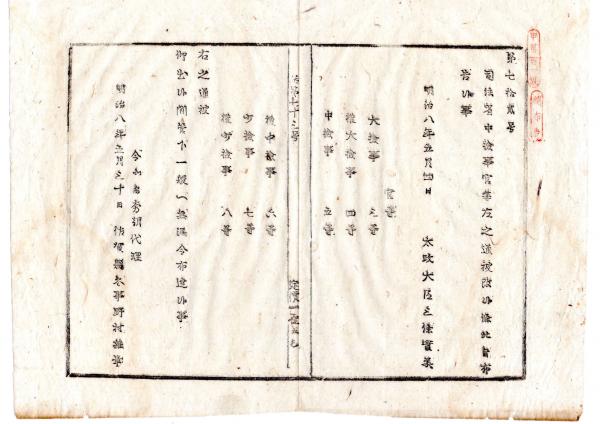 第七拾貳号
司法省中檢事官等左之通被改候條此旨布
告候事
明治八年五月四日　太政大臣三條實美
官等
大檢事　三等
權大檢事　四等
中檢事　五等
第七十三号
權中檢事　六等
少檢事　七等
權少檢事　八等
右之通被
仰出候間管下一般へ無漏令布達候事
令和名秀明代理
明治八年五月三十日　佐賀縣參事野村維章